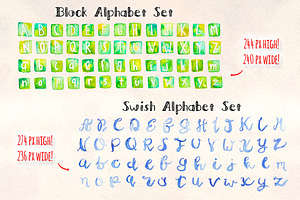 Block Alphabet Set
A B C D E F G H I J K L M
N O P Q R S T U V W X Y Z
a b c d e f g h i j k l m
n o p q r s t u v w x y z
244 PX HIGH!
240 PX WIDE!
Swish Alphabet Set
A B C D E F G H I J K L M
N O P Q R S T U V W X Y Z
274 PX HIGH!
236 PX WIDE!
a b c d e f g h i j k l m
n o p q r s t u v w x y z